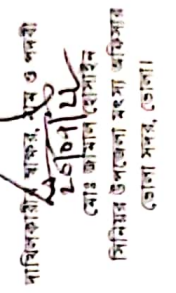 দাখিলকারীর স্বাক্ষর, নাম ও পদবী
মোঃ জামাল হোসাইন
সিনিয়র উপজেলা মৎস্য অফিসার
ভোলা সদর, ভোলা।